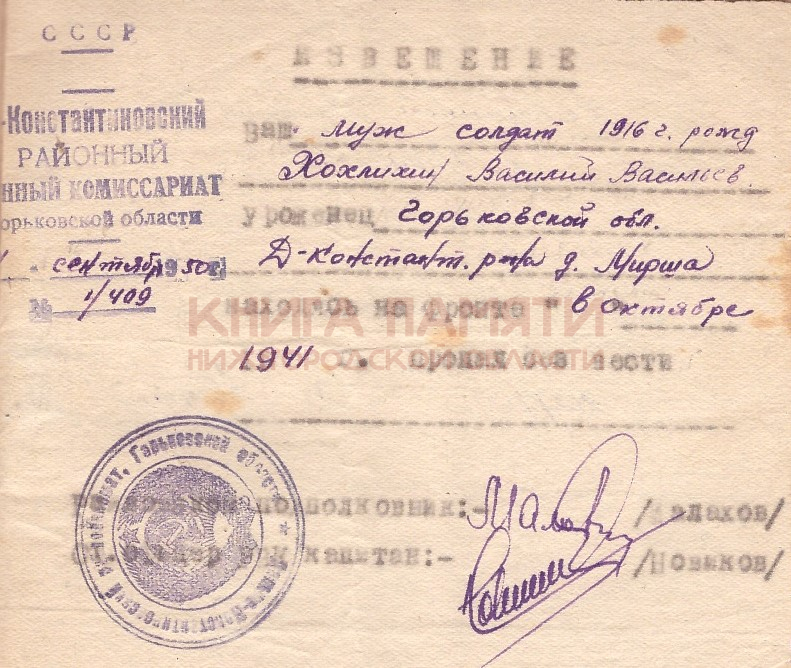 СССР
ИЗВЕЩЕНИЕ
Константиновский
РАЙОННЫЙ
нный комиссариат
орьковской области
сентября 1950 г.
№ 1/409
Ваш муж солдат 1916 г. рожд
Хохлихин Василий Васильев.
уроженец Горьковской обл.
Д-Констант. р-на д. Мирша
находясь на фронте " в октябре
1941 г. пропал без вести
КНИГА ПАМЯТИ
НИЖЕГОРОДСКОЙ ОБЛАСТИ
подполковник:- /Малахов/
капитан:- /Новиков/